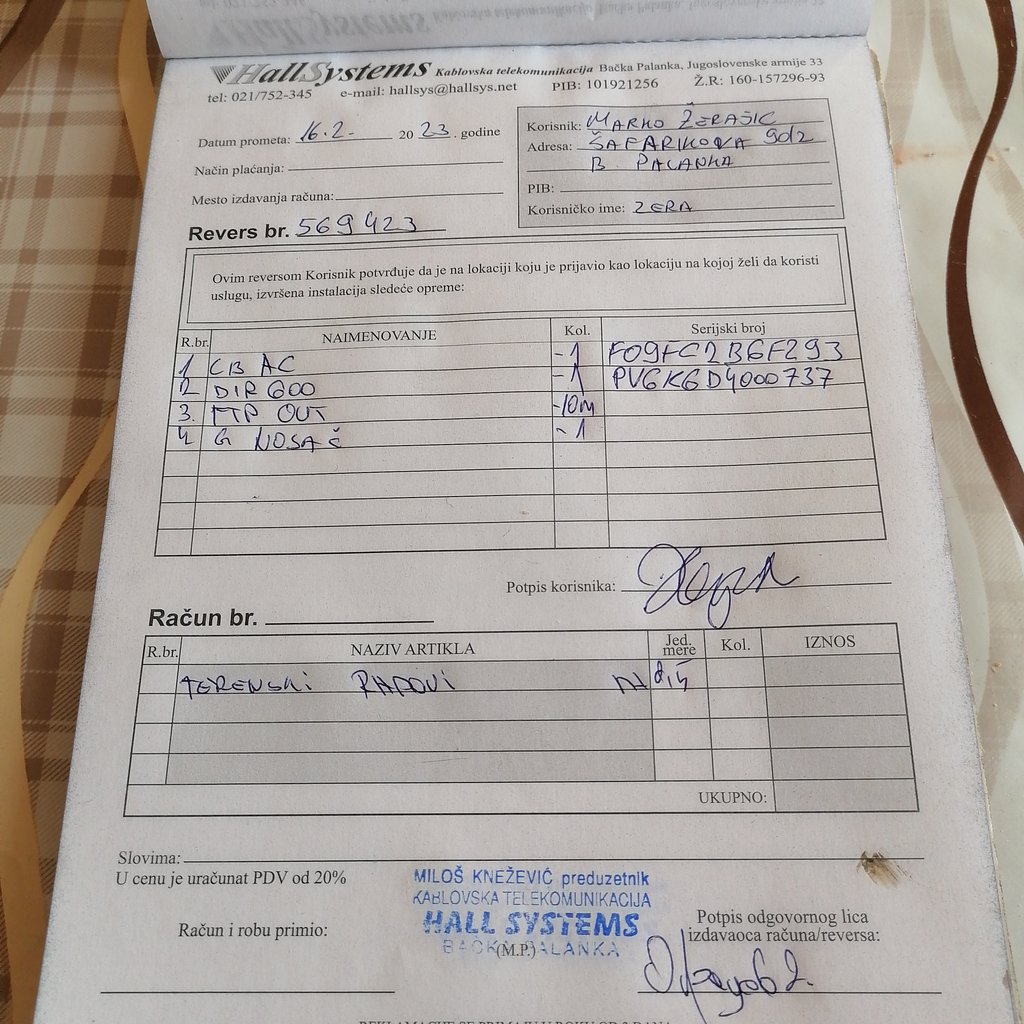 HallSystems Kablovska telekomunikacija Bačka Palanka, Jugoslovenske armije 33
tel: 021/752-345 e-mail: hallsys@hallsys.net PIB: 101921256 Ž.R: 160-157296-93
Datum prometa: 16.2. 20 23. godine
Način plaćanja:
Mesto izdavanja računa:
Revers br. 569423
Korisnik: MARKO ŽERAJIC
Adresa: ŠAFARIKOVA
B. PALANKA
PIB:
Korisničko ime: ZERA
Ovim reversom Korisnik potvrđuje da je na lokaciji koju je prijavio kao lokaciju na kojoj želi da koristi
uslugu, izvršena instalacija sledeće opreme:
R.br. NAIMENOVANJE Kol. Serijski broj
1 CB AC -1 F09FC2B6F293
2 DIR 600 -1 PV6K6D4000737
3. FTP OUT -10m
4 G NOSAČ -1
Potpis korisnika:
Račun br.
R.br. NAZIV ARTIKLA Jed. mere Kol. IZNOS
TERENSKI RADOVI
UKUPNO:
Slovima:
U cenu je uračunat PDV od 20%
MILOŠ KNEŽEVIĆ preduzetnik
KABLOVSKA TELEKOMUNIKACIJA
HALL SYSTEMS
BAČKA PALANKA
(M.P.)
Račun i robu primio:
Potpis odgovornog lica
izdavaoca računa/reversa: